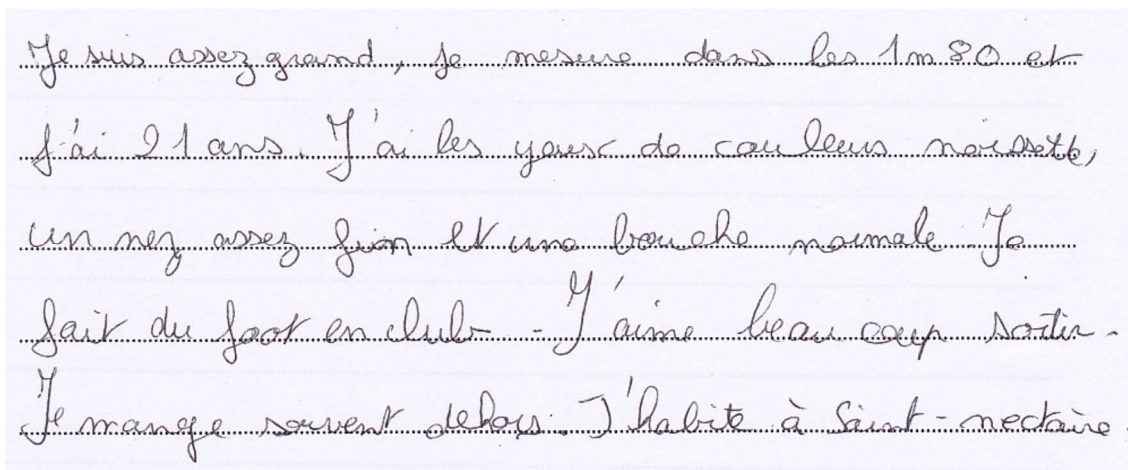 Je suis assez grand, je mesure dans les 1m80 et
j'ai 21 ans. J'ai les yeux de couleurs noisette,
un nez assez fin et une bouche normale. Je
fait du foot en club - J'aime beaucoup sortir.
Je mange souvent dehors. J'habite à Saint-nectaire.